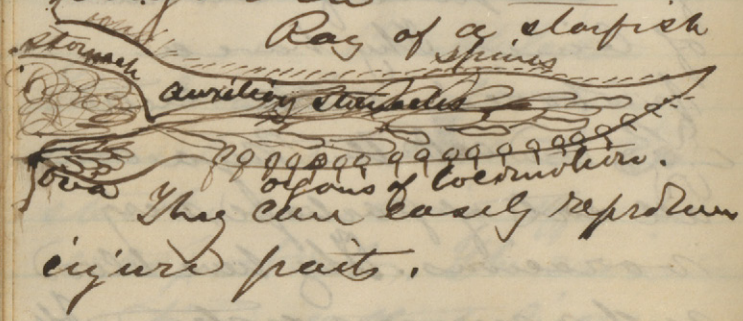 Ray of a starfish
spines
stomach
auxiliary stomachs
ova
organs of locomotion.
They can easily reproduce
injured parts.